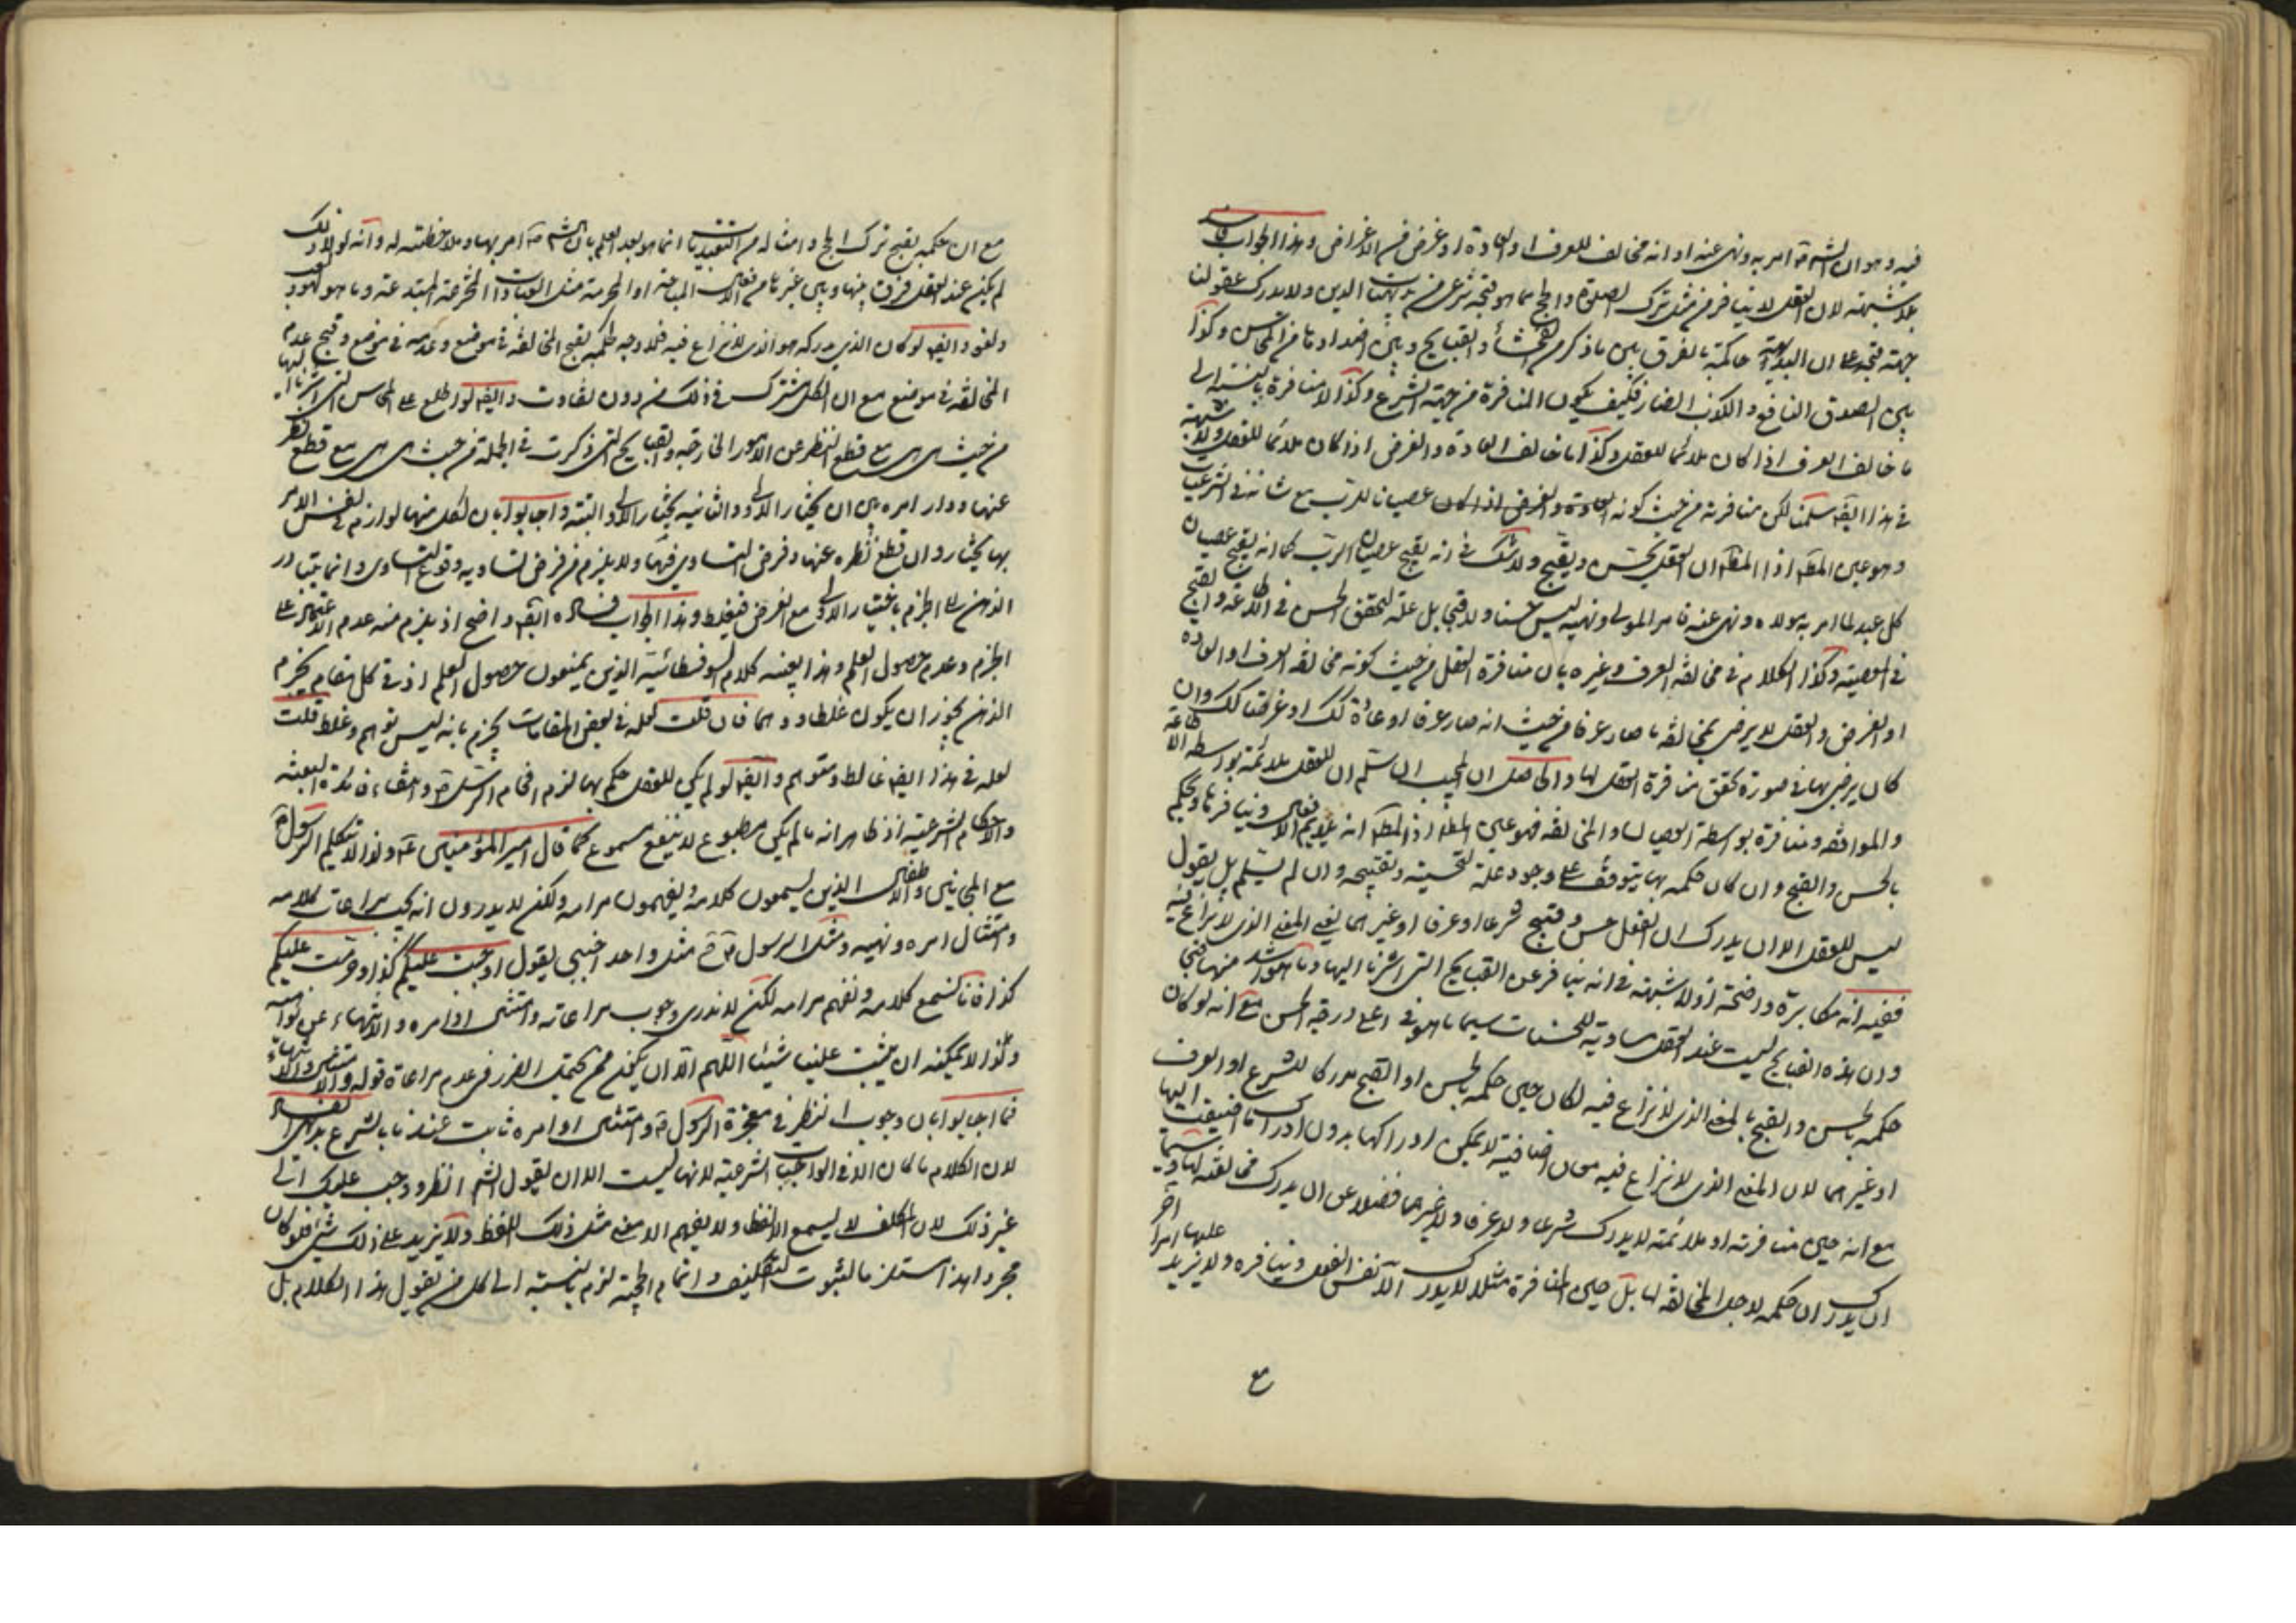 فيه وهو ان الش تع امر به ونهى عنه او انه مخالف للعرف او العادة او غرض من الاغراض وهذا الجواب فاسد
بلا شبهة لان العقل لا ينافر من مثل ترك الصلوة والحج مما هو قبحه شرعى من بديهيات الدين ولا يدرك عقولنا
جهة قبحه على ان البديهة حاكمة بالفرق بين ما ذكر من الفحشاء والقبايح وبين اضدادها من المحاسن وكذا
بين الصدق النافع والكذب الضار فكيف يكون المنافرة من جهة الشرع وكذا لا منافرة بالنسبة الى
ما خالف العرف اذا كان ملائما للعقل وكذا ما خالف العادة والغرض اذا كان ملائما للعقل ولا شبهة
فى هذا ايضا سلمنا لكن منافرته من حيث كونه العادة والغرض اذا كان عصيانا للرب مع شانه فى الترغيب
وهو عين المط اذ المط ان العقل يحسن ويقبح ولا شك فى انه يقبح عصيان الرب كما انه يقبح عصيان
كل عبد لما امر به مولاه ونهى عنه فامر المولى ونهيه ليس حسنا ولا قبحا بل علة لتحقق الحسن فى الطاعة والقبح
فى المعصية وكذا الكلام فى مخالفة العرف وغيره بان منافرة العقل من حيث كونه مخالفة العرف او العادة
او الغرض والعقل لا يرضى بمخالفة ما صار عرفا من حيث انه صار عرفا او عادة لك او غرضا لك وان
كان يرضى بها فى صورة تحقق منافرة العقل لها والحاصل ان المجيب ان سلم ان للعقل ملائمة بواسطة الاطاعة
والموافقة ومنافرة بواسطة العصيان والمخالفة فهو عين المط اذ المط انه يلايم الافعال وينافرها ويحكم
بالحسن والقبح وان كان حكمه بها يتوقف على وجود علة لتحسينه وتقبيحه وان لم يسلم بل يقول
ليس للعقل الا ان يدرك ان الفعل حسن وقبيح شرعا او عرفا او غيرهما يعنى المعنى الذى لا نزاع فيه
ففيه انه مكابرة واضحة اذ لا شبهة فى انه ينافر عن القبايح التى اشرنا اليها وما هو اشد منها قبحا
وان هذه القبايح ليست عند العقل مساوية للحسنات سيما ما هو فى اعلى درجة الحسن مع انه لو كان
حكمه بالحسن والقبح بالمعنى الذى لا نزاع فيه لكان حين حكمه بالحسن او القبح مدركا للشرع او العرف
او غيرهما لان المعنى الذى لا نزاع فيه معان اضافية لا يمكن ادراكها بدون ادراك ما اضيفت اليها
مع انه حين منافرته او ملائمته لا يدرك شرعا ولا عرفا ولا غيرهما فضلا عن ان يدرك مخالفته لها
ان يدرك ان حكمه لاجل المخالفة لها بل حين المنافرة مثلا لا يدرك الا نفس الفعل وينافره ولا يزيد عليها امرا آخر
مع
مع ان حكمه بقبح ترك الحج وامثاله من التعبديات انما هو بعد العلم بان الش تع امر بها وملاحظته له وانه لولا ذلك
لم يكن عند العقل فرق بينها وبين غيرها من الافعال المباحة او المحرمة مثل العبادات المخترعة المبتدعة وما هو لهو ولعب
ولغو وايضا لو كان الذى يدركه هو الذى لا نزاع فيه فلا وجه لحكمه بقبح المخالفة فى موضع وعدمه فى موضع وقبح عدم
المخالفة فى موضع مع ان الكل مشترك فى ذلك من دون تفاوت وايضا لو اطلع على المحاسن التى اشرنا اليها
من حيث هى هى مع قطع النظر عن الامور الخارجة والقبايح التى ذكرت فى الجملة من حيث هى هى مع قطع النظر
عنها ودار امره بين ان يختار الاولى والثانية يختار الاولى البتة واجابوا بان لكل منها لوازم فى نفس الامر
بها يختار وان قطع نظره عنها وفرض التساوى فيها ولا يلزم من فرض تساويه وقوع التساوى وانما يتبادر
الذهن الى الجزم باختيار الاولى مع الفرض فيغلط وهذا الجواب فساده ايضا واضح اذ يلزم منه عدم الاعتماد على
الجزم وعدم حصول العلم وهذا بعينه كلام السوفسطائية الذين يمنعون حصول العلم اذ فى كل مقام يجزم
الذهن يجوز ان يكون غلطا ووهما فان قلت لعله فى بعض المقامات يجزم بانه ليس توهم وغلط قلت
لعله فى هذا ايضا غالط ومتوهم وايضا لو لم يكن للعقل حكم بها لزم افحام الرسل ع وانتفاء فائدة البعثة
والاحكام الشرعية اذ ظاهر انه ما لم يكن مطبوع لا ينفع مسموع كما قال امير المؤمنين ع ولذا لا تتكلم الرسول ع
مع المجانين والاطفال الذين يسمعون كلامه ويفهمون مرامه ولكن لا يدرون انه يجب مراعات كلامه
وامتثال امره ونهيه ومثل الرسول ع ح مثل واحد اجنبى يقول اوجبت عليكم كذا وحرمت عليكم
كذا فانا نسمع كلامه ونفهم مرامه لكن لا ندرى وجوب مراعاته وامتثال اوامره والانتهاء عن نواهيه
وكذا لا يمكنه ان يثبت علينا شيئا اللهم الا ان يكون ممن يحتمل الضرر فى عدم مراعاة قوله والامتثال والانتهاء
فما اجابوا بان وجوب النظر فى معجزة الرسول ع وامتثال اوامره ثابت عندنا بالشرع بديهى الفساد
لان الكلام ما كان الا فى الواجبات الشرعية لانها ليست الا ان يقول الش انظر ووجب عليك الى
غير ذلك لان المكلف لا يسمع الا لفظا ولا يفهم الا معنى مثل ذلك اللفظ ولا يزيد على ذلك شىء فلو كان
مجرد هذا مستلزما لثبوت التكليف واتمام الحجة لزم بالنسبة الى كل من يقول هذا الكلام بل